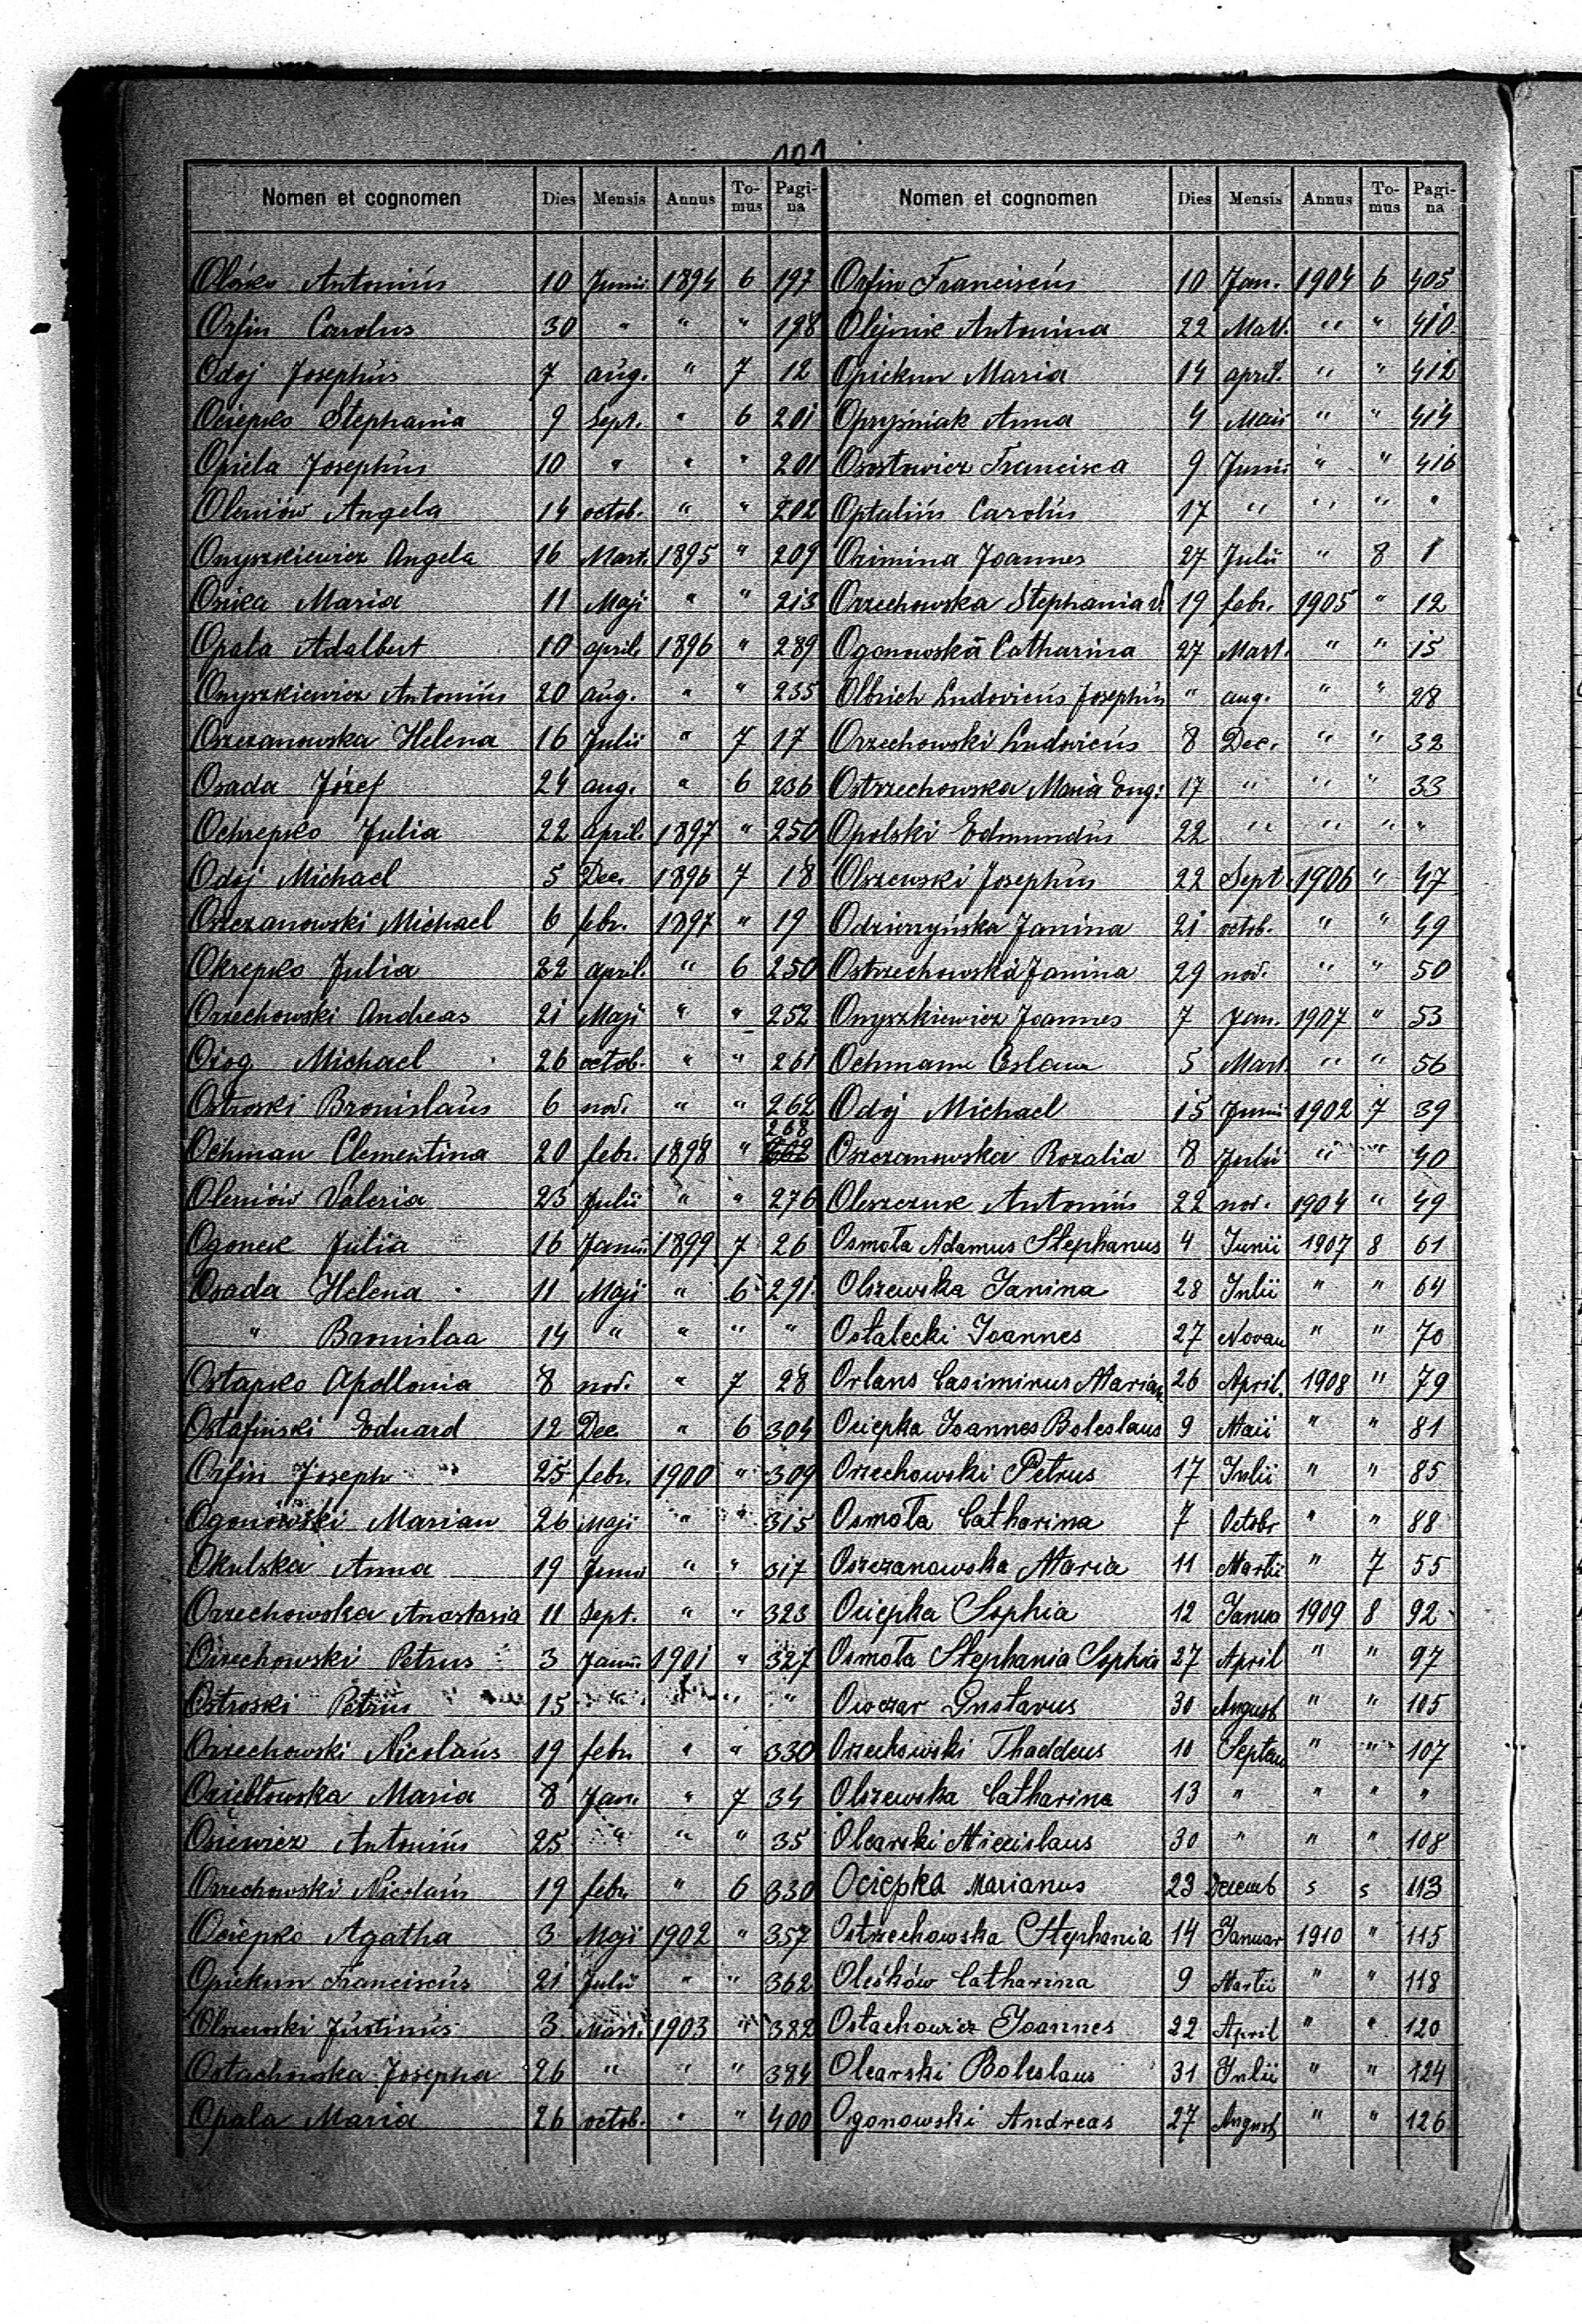 101
Nomen et cognomen Dies Mensis Annus To-mus Pagi-na
Olésko Antoniús 10 Junii 1894 6 197
Orfin Carolus 30 " " " 198
Odoj Josephús 7 aúg. " 7 12
Ociepko Stephania 9 Sept. " 6 201
Opiela Josephús 10 " " " 201
Oleniów Angela 14 octob. " " 202
Onyszkiewicz Angela 16 Mart. 1895 " 209
Osika Maria 11 Maji " " 213
Opala Adalbert 10 april. 1896 " 289
Onyszkiewicz Antoniús 20 aúg. " " 235
Oszczanowska Helena 16 Julii " 7 17
Osada Józef 24 aug. " 6 236
Ochrepko Julia 22 april. 1897 " 250
Odój Michael 5 Dec. 1896 7 18
Oszczanowski Michael 6 febr. 1897 " 19
Okrepko Julia 22 april. " 6 250
Orzechowski Andreas 21 Maji " " 252
Oiog Michael 26 octob. " " 261
Ostroski Bronislaús 6 nov. " " 262
Ochman Clementina 20 febr. 1898 " 268
Oleniów Valeria 23 Julii " " 276
Ogonek Júlia 16 Januii 1899 7 26
Osada Helena 11 Maji " 6 291
" Bronislaa 14 " " " "
Ostapko Apollonia 8 nov. " 7 28
Ostafiński Eduard 12 Dec. " 6 304
Orfin Joseph 25 febr. 1900 " 309
Ogonowski Marian 26 Maji " " 315
Okulska Anna 19 Junii " " 317
Orzechowska Anastasia 11 Sept. " " 323
Orzechowski Petrus 3 Januii 1901 " 327
Ostroski Petrús 15 " " " "
Orzechowski Nicolaús 19 febr. " " 330
Oziebłowska Maria 8 Jan. " 7 34
Osiewicz Antoniús 25 " " " 35
Orzechowski Nicolaús 19 febr. " 6 330
Ociepko Agatha 3 Maji 1902 " 357
Opiekun Franciscús 21 Julii " " 362
Olszewski Jústinús 3 Mart. 1903 " 382
Ostachowska Josepha 26 " " " 384
Opala Maria 26 octob. " " 400
Nomen et cognomen Dies Mensis Annus To-mus Pagi-na
Orfin Franciscús 10 Jan. 1904 6 405
Olejnik Antonina 22 Mart. " " 410
Opiekun Maria 14 april. " " 412
Opryśniak Anna 4 Maii " " 414
 Osostowicz Francisca 9 Junii " " 416
Optuliús Carolús 17 " " " "
Ozimina Joannes 27 Julii " 8 1
Orzechowska Stephania 19 febr. 1905 " 12
Ogonowska Catharina 27 Mart. " " 15
Olbrich Ludovicús Josephús " aug. " " 28
Orzechowski Ludovicús 8 Dec. " " 32
Ostrzechowska Maria Eug: 17 " " " 33
Opolski Edmundús 22 " " " "
Olszewski Josephús 22 Sept. 1906 " 47
Odziorzyńska Janina 21 octob. " " 49
Ostrzechowska Janina 29 nov. " " 50
Onyszkiewicz Joannes 7 Jan. 1907 " 53
Ochmann Ceslaus 5 Mart. " " 56
Odój Michael 15 Junii 1902 7 39
Oszczanowska Rozalia 8 Julii " " 40
Oleszczuk Antoniús 22 nov. 1904 " 49
Osmota Adamus Stephanus 4 Junii 1907 8 61
Olszewska Janina 28 Julii " " 64
Ostalecki Joannes 27 " " 70
Orlans Casimirus Marian 26 April. 1908 " 79
Ociepka Joannes Boleslaus 9 Maii " " 81
Orzechowski Petrus 17 Julii " " 85
Osmota Catharina 7 Octobr " " 88
Oszczanowska Maria 11 Martii " 7 55
Ociepka Sophia 12 Janua 1909 8 92
Osmota Stephania Sophia 27 April " " 97
Owczar Gustavus 30 August " " 105
Orzechowski Thaddeus 10 " " 107
Olszewska Catharina 13 " " " "
Olearski Miecislaus 30 " " " 108
Ociepka Marianus 23 Decemb s s 113
Ostrzechowska Stephania 14 Januar 1910 " 115
Oleśków Catharina 9 Martii " " 118
Ostachowicz Joannes 22 April " " 120
Olearski Boleslaus 31 Julii " " 124
Ogonowski Andreas 27 August " " 126